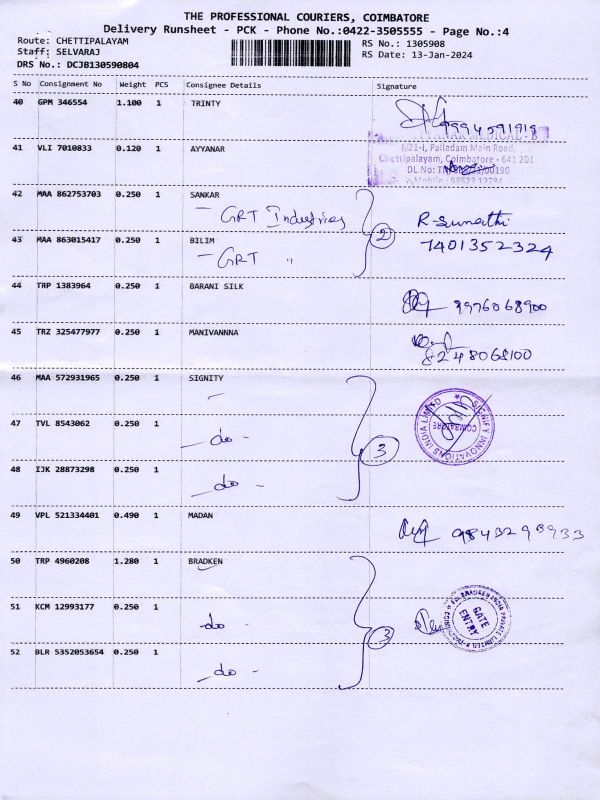 THE PROFESSIONAL COURIERS, COIMBATORE
Delivery Runsheet - PCK - Phone No.:0422-3505555 - Page No.:4
Route: CHETTIPALAYAM
Staff: SELVARAJ
DRS No.: DCJB130590804
RS No.: 1305908
RS Date: 13-Jan-2024
S No Consignment No Weight PCS Consignee Details Signature
40 GPM 346554 1.100 1 TRINTY
9994591918
41 VLI 7010833 0.120 1 AYYANAR
AYYANAR MEDICAL
6/21-I, Palladam Main Road,
Chettipalayam, Coimbatore - 641 201
DL.No: /00190
Mobile: 99523 12784
42 MAA 862753703 0.250 1 SANKAR
- GRT Industries
R-Sumathi
43 MAA 863015417 0.250 1 BILIM
- GRT "
2
7401352324
44 TRP 1383964 0.250 1 BARANI SILK
9976068900
45 TRZ 325477977 0.250 1 MANIVANNNA
8248068100
46 MAA 572931965 0.250 1 SIGNITY
SIGNIFY INNOVATIONS INDIA LIMITED
COIMBATORE
47 TVL 8543062 0.250 1
- do -
3
48 IJK 28873298 0.250 1
- do -
49 VPL 521334401 0.490 1 MADAN
9843293933
50 TRP 4960208 1.280 1 BRADKEN
BRADKEN INDIA PRIVATE LIMITED
GATE
ENTRY
51 KCM 12993177 0.250 1
- do -
3
52 BLR 5352053654 0.250 1
- do -